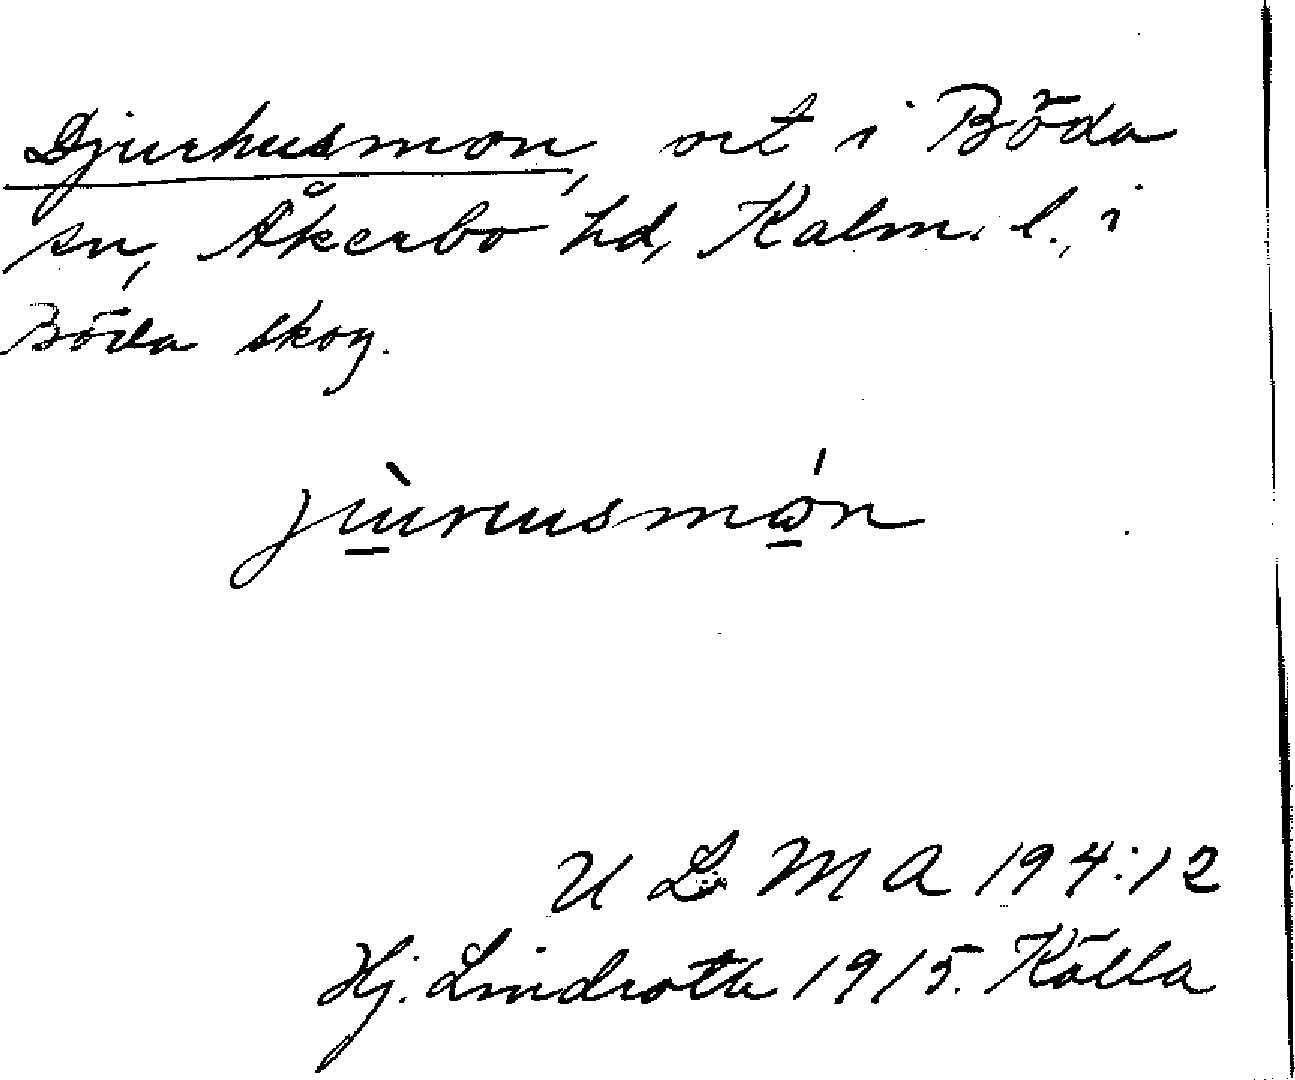 Djurhusmon, ort i Böda
sn, Åkerbo hd, Kalm. l., i
Böda skog.
jùrusmón
U L M A 194:12
Hj. Lindroth 1915. Källa